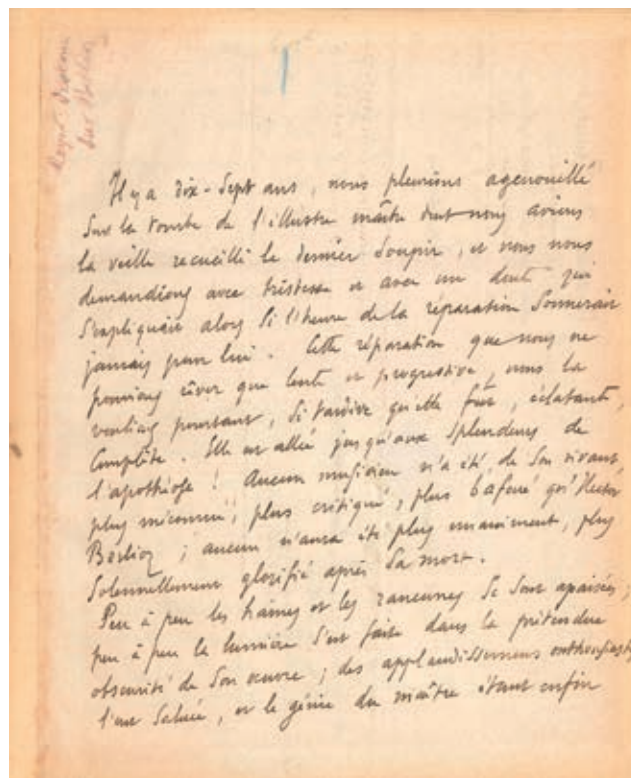 Reyer. Discours
sur Berlioz
1
Il y a dix-sept ans, nous pleurions agenouillé
sur la tombe de l'illustre maître dont nous avions
la veille recueilli le dernier soupir, et nous nous
demandions avec tristesse et avec un doute qui
s'expliquait alors si l'heure de la réparation sonnerait
jamais pour lui. Cette réparation que nous ne
pouvions rêver que lente et progressive, nous la
voulions pourtant, si tardive qu'elle fût, éclatante,
complète. Elle est allée jusqu'aux splendeurs de
l'apothéose ! Aucun musicien n'a été, de son vivant
plus méconnu, plus critiqué, plus bafoué qu'Hector
Berlioz ; aucun n'aura été plus unanimement, plus
solennellement glorifié après sa mort.
Peu à peu les haines et les rancunes se sont apaisées ;
peu à peu la lumière s'est faite dans la prétendue
obscurité de son œuvre ; des applaudissemens enthousiastes
l'ont saluée, et le génie du maître étant enfin